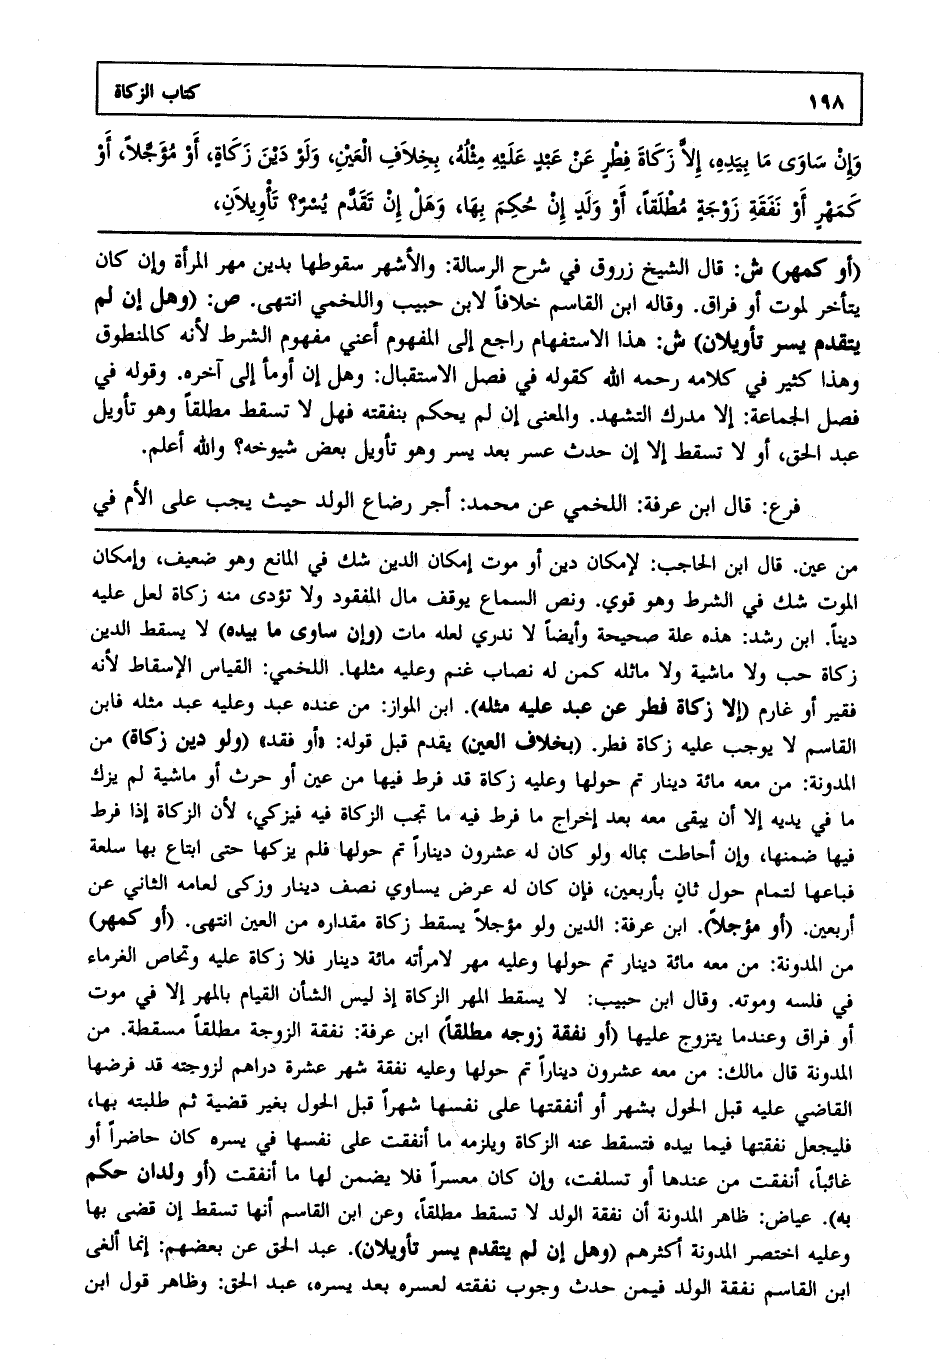 ١٩٨ كتاب الزكاة
وَإِنْ سَاوَى مَا بِيَدِهِ، إِلاَّ زَكَاةَ فِطْرٍ عَنْ عَبْدٍ عَلَيْهِ مِثْلُهُ، بِخِلاَفِ الْعَيْنِ، وَلَوْ دَيْنَ زَكَاةٍ، أَوْ مُؤَجَّلاً، أَوْ
كَمَهْرٍ أَوْ نَفَقَةِ زَوْجَةٍ مُطْلَقاً، أَوْ وَلَدٍ إِنْ حُكِمَ بِهَا، وَهَلْ إِنْ تَقَدَّم يُسْرٌ؟ تَأْوِيلاَنِ،
(أو كمهر) ش: قال الشيخ زروق في شرح الرسالة: والأشهر سقوطها بدين مهر المرأة وإن كان
يتأخر لموت أو فراق. وقاله ابن القاسم خلافاً لابن حبيب واللخمي انتهى. ص: (وهل إن لم
يتقدم يسر تأويلان) ش: هذا الاستفهام راجع إلى المفهوم أعني مفهوم الشرط لأنه كالمنطوق
وهذا كثير في كلامه رحمه الله كقوله في فصل الاستقبال: وهل إن أومأ إلى آخره. وقوله في
فصل الجماعة: إلا مدرك التشهد. والمعنى إن لم يحكم بنفقته فهل لا تسقط مطلقاً وهو تأويل
عبد الحق، أو لا تسقط إلا إن حدث عسر بعد يسر وهو تأويل بعض شيوخه؟ والله أعلم.
فرع: قال ابن عرفة: اللخمي عن محمد: أجر رضاع الولد حيث يجب على الأم في
من عين. قال ابن الحاجب: لإمكان دين أو موت إمكان الدين شك في المانع وهو ضعيف، وإمكان
الموت شك في الشرط وهو قوي. ونص السماع يوقف مال المفقود ولا تؤدى منه زكاة لعل عليه
ديناً. ابن رشد: هذه علة صحيحة وأيضاً لا ندري لعله مات (وإن ساوى ما بيده) لا يسقط الدين
زكاة حب ولا ماشية ولا ماثله كمن له نصاب غنم وعليه مثلها. اللخمي: القياس الإسقاط لأنه
فقير أو غارم (إلا زكاة فطر عن عبد عليه مثله). ابن المواز: من عنده عبد وعليه عبد مثله فابن
القاسم لا يوجب عليه زكاة فطر. (بخلاف العين) يقدم قبل قوله: «أو فقد» (ولو دين زكاة) من
المدونة: من معه مائة دينار تم حولها وعليه زكاة قد فرط فيها من عين أو حرث أو ماشية لم يزك
ما في يديه إلا أن يبقى معه بعد إخراج ما فرط فيه ما تجب الزكاة فيه فيزكي، لأن الزكاة إذا فرط
فيها ضمنها، وإن أحاطت بماله ولو كان له عشرون ديناراً تم حولها فلم يزكها حتى ابتاع بها سلعة
فباعها لتمام حول ثانٍ بأربعين، فإن كان له عرض يساوي نصف دينار وزكى لعامه الثاني عن
أربعين. (أو مؤجلاً). ابن عرفة: الدين ولو مؤجلاً يسقط زكاة مقداره من العين انتهى. (أو كمهر)
من المدونة: من معه مائة دينار تم حولها وعليه مهر لامرأته مائة دينار فلا زكاة عليه وتحاص الغرماء
في فلسه وموته. وقال ابن حبيب: لا يسقط المهر الزكاة إذ ليس الشأن القيام بالمهر إلا في موت
أو فراق وعندما يتزوج عليها (أو نفقة زوجه مطلقاً) ابن عرفة: نفقة الزوجة مطلقاً مسقطة. من
المدونة قال مالك: من معه عشرون ديناراً تم حولها وعليه نفقة شهر عشرة دراهم لزوجته قد فرضها
القاضي عليه قبل الحول بشهر أو أنفقتها على نفسها شهراً قبل الحول بغير قضية ثم طلبته بها،
فليجعل نفقتها فيما بيده فتسقط عنه الزكاة ويلزمه ما أنفقت على نفسها في يسره كان حاضراً أو
غائباً، أنفقت من عندها أو تسلفت، وإن كان معسراً فلا يضمن لها ما أنفقت (أو ولدان حكم
به). عياض: ظاهر المدونة أن نفقة الولد لا تسقط مطلقاً، وعن ابن القاسم أنها تسقط إن قضى بها
وعليه اختصر المدونة أكثرهم (وهل إن لم يتقدم يسر تأويلان). عبد الحق عن بعضهم: إنما ألغى
ابن القاسم نفقة الولد فيمن حدث وجوب نفقته لعسره بعد يسره، عبد الحق: وظاهر قول ابن